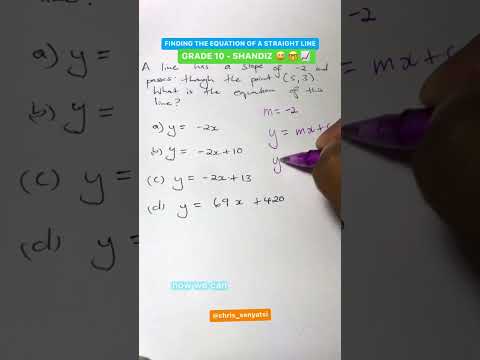 FINDING THE EQUATION OF A STRAIGHT LINE
GRADE 10 - SHANDIZ 😄🎁📝
A line has a slope of -2 and
passes though the point (5,3).
What is the equation of this
line?
m = -2
a) y = -2x
y = mx+c
(b) y = -2x+10
y
(c) y = -2x+13
(d) y = 69x +420
now we can
@chris_senyatsi
a) y =
b) y =
(c) y =
(d) y =
= mx+